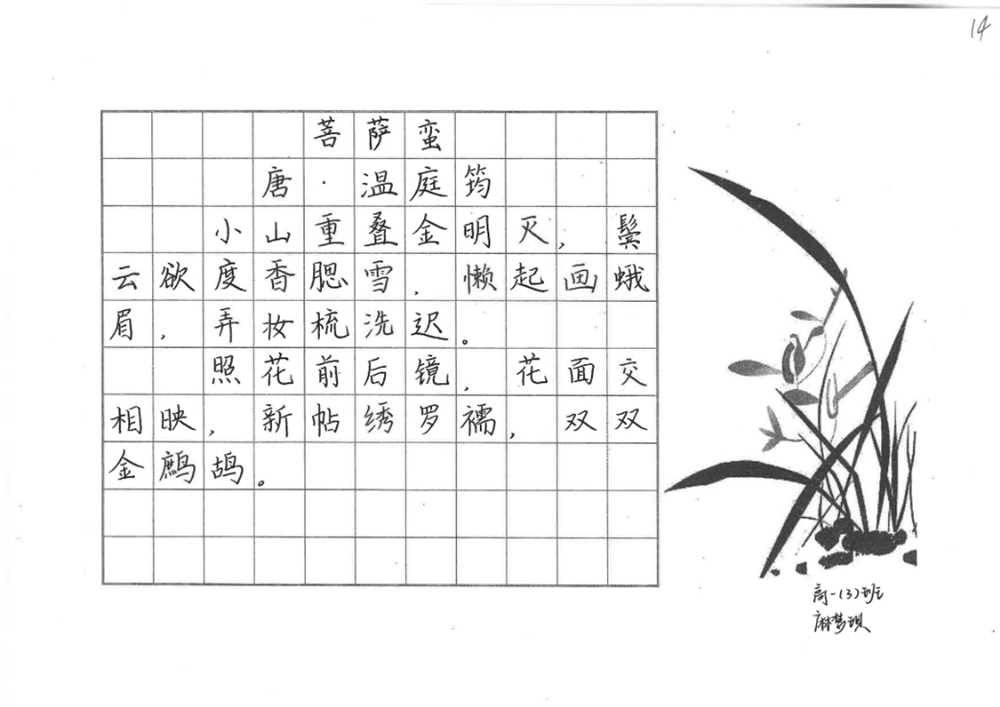 14
菩萨蛮
唐·温庭筠
小山重叠金明灭,鬓
云欲度香腮雪.懒起画蛾
眉,弄妆梳洗迟。
照花前后镜,花面交
相映,新帖绣罗襦,双双
金鹧鸪。
高一(3)班
麻梦